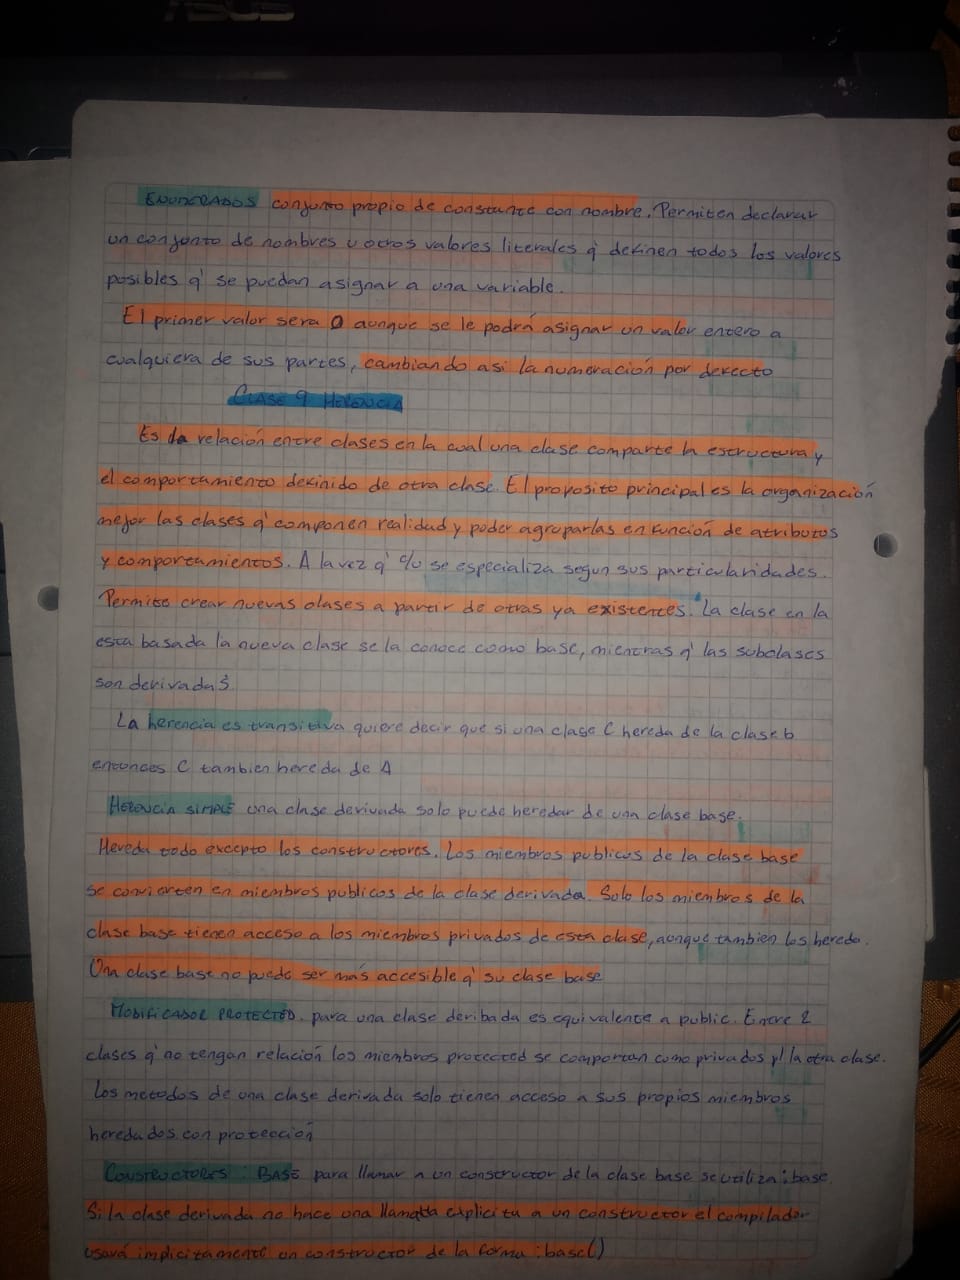 ASUS
ENUMERADOS conjunto propio de constante con nombre. Permiten declarar
un conjunto de nombres u otros valores literales q' definen todos los valores
posibles q' se puedan asignar a una variable.
El primer valor sera 0 aunque se le podrá asignar un valor entero a
cualquiera de sus partes, cambiando asi la numeración por defecto
CLASE 9 HERENCIA
Es la relación entre clases en la cual una clase comparte la estructura y
el comportamiento definido de otra clase. El proposito principal es la organización
mejor las clases q' componen realidad y poder agruparlas en función de atributos
y comportamientos. A la vez q' c/u se especializa segun sus particularidades.
Permite crear nuevas clases a partir de otras ya existentes. La clase en la
esta basada la nueva clase se la conoce como base, mientras q' las subclases
son derivadas
La herencia es transitiva quiere decir que si una clase C hereda de la clase b
entonces C tambien hereda de A
HERENCIA SIMPLE una clase derivada solo puede heredar de una clase base.
Hereda todo excepto los constructores. Los miembros publicos de la clase base
se convierten en miembros publicos de la clase derivada. Solo los miembros de la
clase base tienen acceso a los miembros privados de esta clase, aunque tambien los hereda.
Una clase base no puede ser más accesible q' su clase base
MODIFICADOR PROTECTED. para una clase deribada es equivalente a public. Entre 2
clases q' no tengan relación los miembros protected se comportan como privados p/ la otra clase.
Los metodos de una clase derivada solo tienen acceso a sus propios miembros
heredados con protección
CONSTRUCTORES: BASE para llamar a un constructor de la clase base se utiliza :base.
Si la clase derivada no hace una llamada explicita a un constructor el compilador
usará implicitamente un constructor de la forma :base()